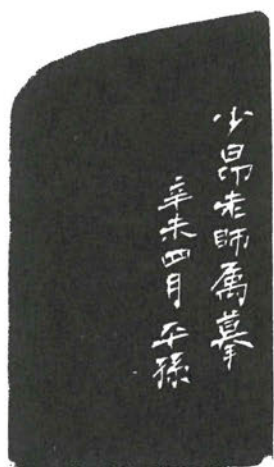 少昂老師属摹
辛未四月 平孫